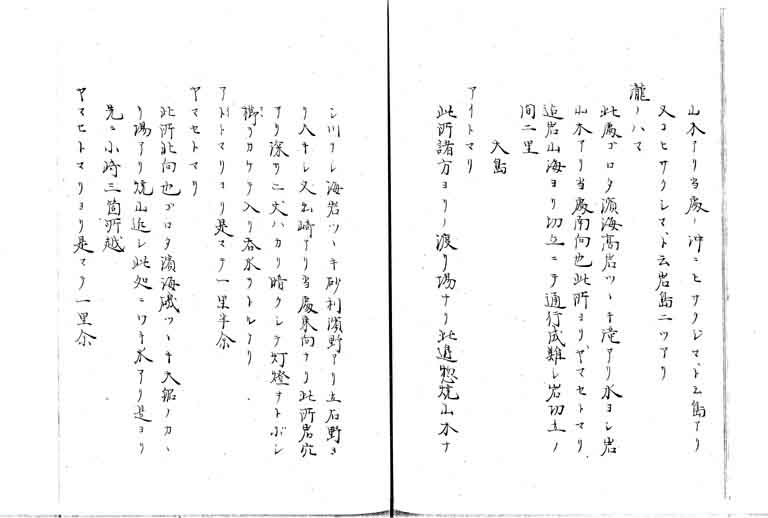 山木アリ当處ノ沖ニヒサクレマヽト云島アリ
又コヒサクレマヽト云岩島二ツアリ
瀧ノハマ
此處ゴロタ濱海高岩ツヽキ滝アリ水ヨシ岩
山木アリ当處南向也此所ヨリヤマセトマリ
迄岩山海ヨリ切立ニテ通行成難シ岩切立ノ
間二里
大島
アイトマリ
此所諸方ヨリノ渡リ場ナリ此邊惣焼山木ナ
シ川ナシ海岩ツヽキ砂利濱野アリ立石野き
リ入キレ又出崎アリ当處東向ナリ此所岩穴
アリ深サ二丈ハカリ暗クシテ灯燈ヲトボシ
梯ヲカケテ入リ呑水ヲトルナリ
アイトマリヨリ是マテ一里半余
ヤマセトマリ
此所北向也ゴロタ濱海磯ツヽキ大船ノカヽ
リ場アリ焼山近シ此処ニワキ水アリ是ヨリ
先ニ小崎三箇所越
ヤマセトマリヨリ是マテ一里余